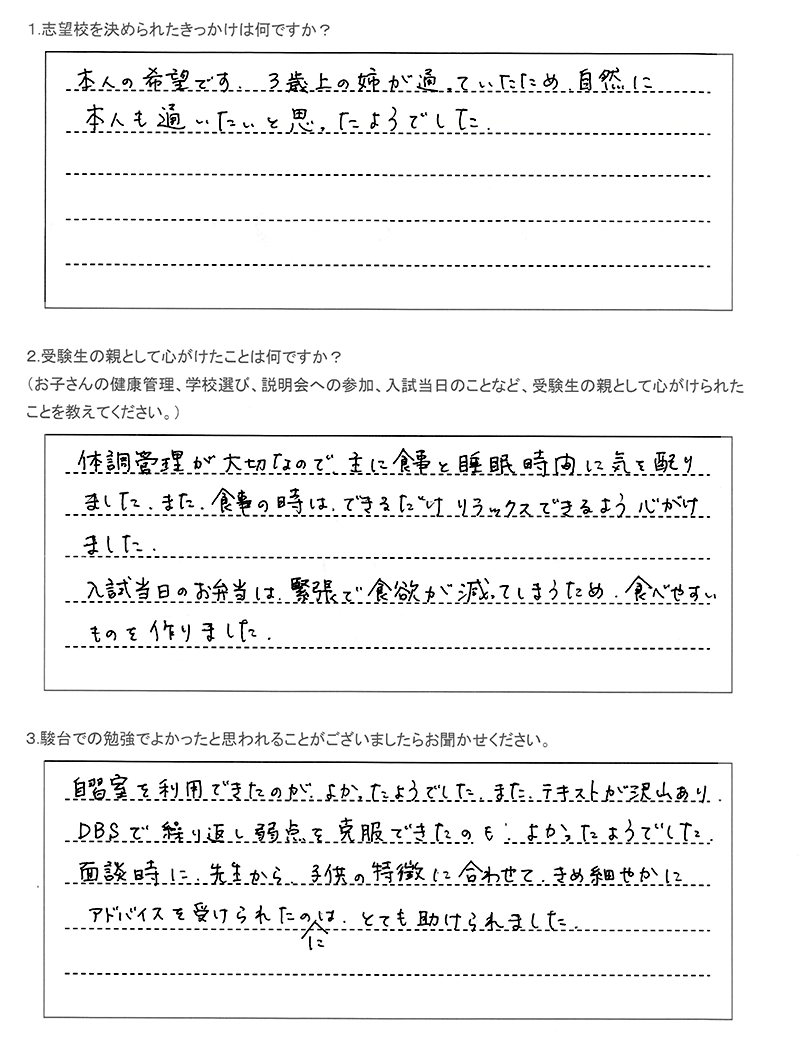 1.志望校を決められたきっかけは何ですか？
本人の希望です。3歳上の姉が通っていたため、自然に
本人も通いたいと思ったようでした。
2.受験生の親として心がけたことは何ですか？
（お子さんの健康管理、学校選び、説明会への参加、入試当日のことなど、受験生の親として心がけられた
ことを教えてください。）
体調管理が大切なので主に食事と睡眠時間に気を配り
ました。また、食事の時は、できるだけリラックスできるよう心がけ
ました。
入試当日のお弁当は、緊張で食欲が減ってしまうため、食べやすい
ものを作りました。
3.駿台での勉強でよかったと思われることがございましたらお聞かせください。
自習室を利用できたのが、よかったようでした。また、テキストが沢山あり、
DBSで繰り返し弱点を克服できたのも、よかったようでした。
面談時に、先生から、子供の特徴に合わせて、きめ細やかに
アドバイスを受けられたのは、とても助けられました。
に